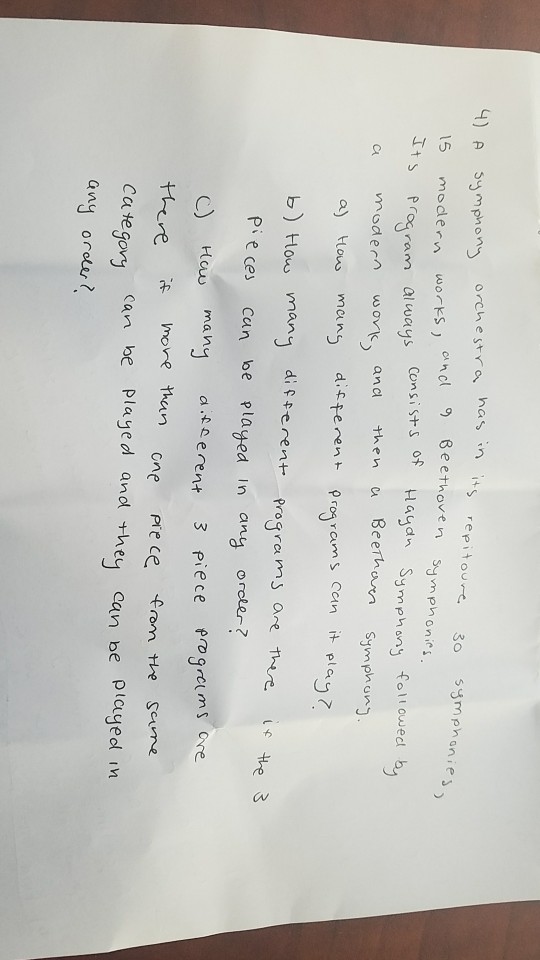 4) A symphony orchestra has in its repitoure 30 symphonies,
15 modern works, and 9 Beethoven symphonies.
Its program always consists of Haydn Symphony followed by
a modern work, and then a Beethoven symphony.
a) How many different programs can it play?
b) How many different programs are there if the 3
pieces can be played in any order?
c) How many different 3 piece programs are
there if more than one piece from the same
category can be played and they can be played in
any order?